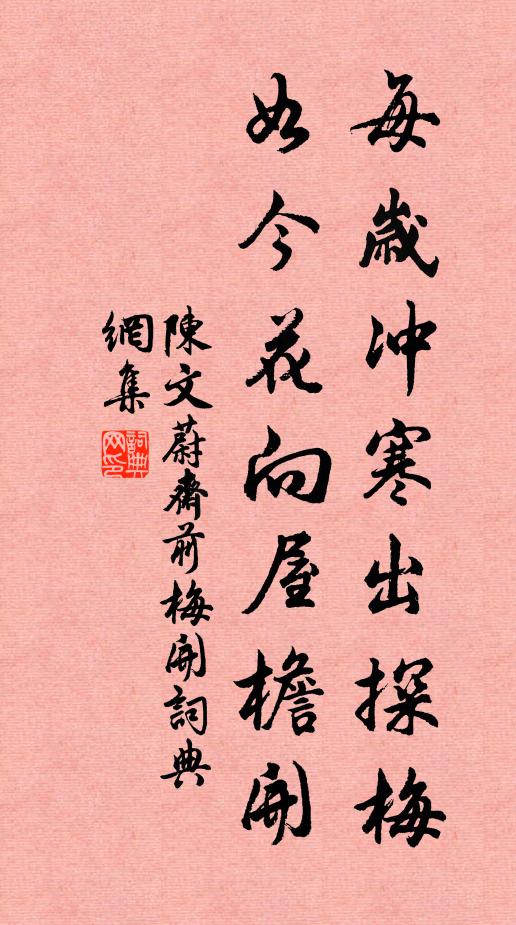 每歲冲寒出探梅
如今花向屋檐開
陳文蔚齋前梅開詞典
網集
詞典網印